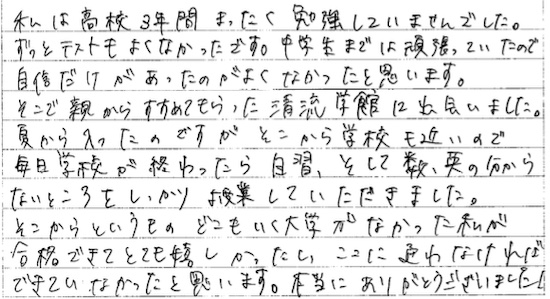 私は高校3年間まったく勉強していませんでした。
ずっとテストもよくなかったです。中学生までは頑張っていたので
自信だけがあったのがよくなかったと思います。
そこで親からすすめてもらった清流学館に出会いました。
夏から入ったのですがそこから学校も近いので
毎日学校が終わったら自習、そして数、英の分から
ないところをしっかり授業していただきました。
そこからというもの どこもいく大学がなかった私が
合格できてとても嬉しかったし、ここに通わなければ
できていなかったと思います。本当にありがとうございました!